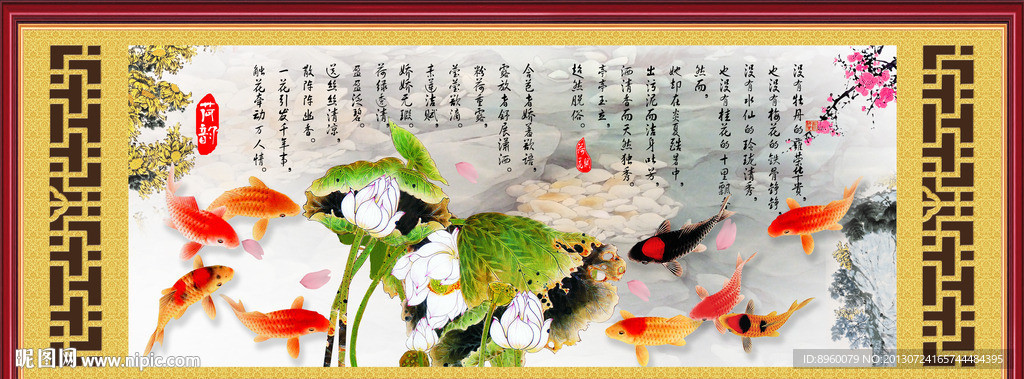 没有牡丹的雍荣华贵，
也没有梅花的铁骨铮铮，
没有水仙的玲珑清秀，
也没有桂花的十里飘，
然而，
她却在炎夏酷暑中，
出污泥而洁身此芳，
洒清香而天然独秀。
亭亭玉立，
超然脱俗。
含苞者娇羞欲语，
露放者舒展潇洒。
粉荷垂露，
莹莹欲滴。
来莲洁赋，
娇娇无瑕。
荷绿透清，
盈盈泛碧。
送丝丝清凉，
散阵阵幽香。
一花引发千年事，
触花牵动万人情。
荷韵
昵图网 www.nipic.com
ID:8960079 NO:20130724165744484395